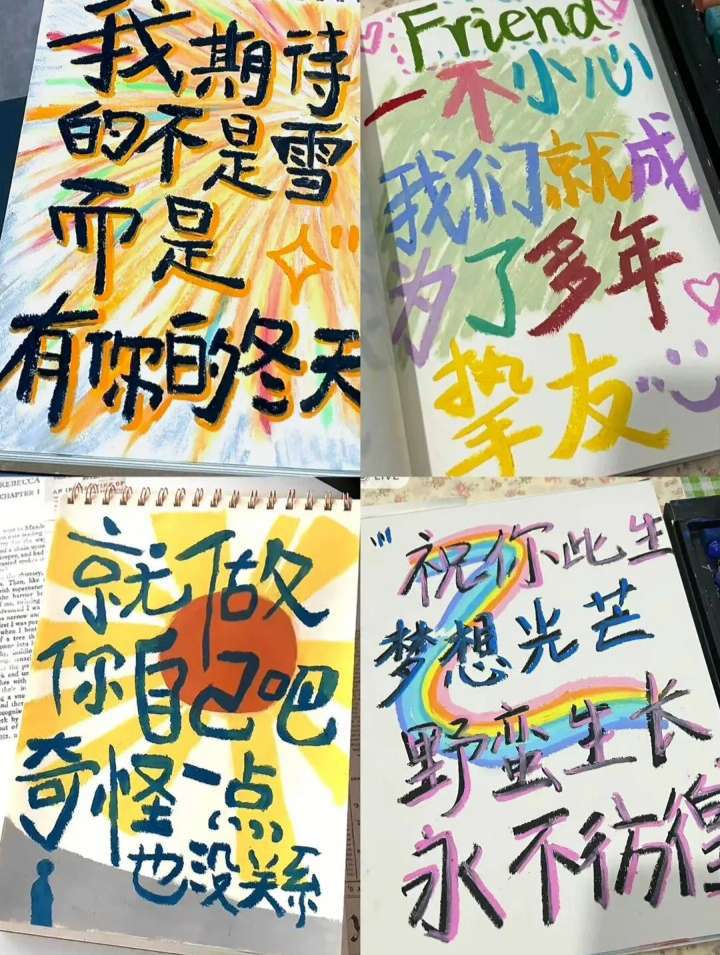 我期待
的不是雪
而是
有你的冬天
Friend
一不小心
我们就成
为了多年
挚友
REBECCA
CHAPTER I
就做
你自己吧
奇怪一点
也没关系
LIVE
祝你此生
梦想光芒
野蛮生长
永不彷徨